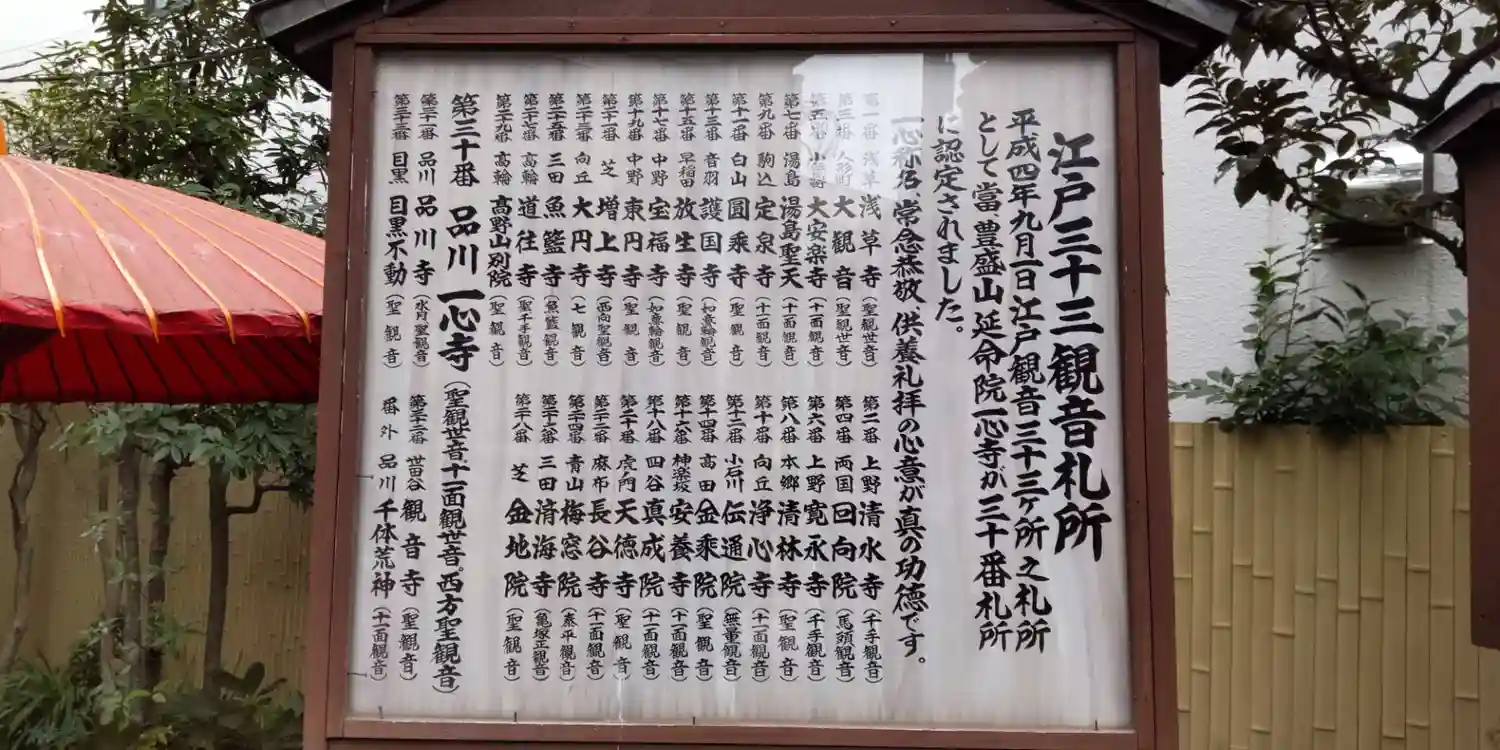 江戸三十三観音札所
平成四年九月一日江戸観音三十三ヶ所之札所
として當、豊盛山延命院一心寺が三十番札所
に認定されました。
一心称名 常念恭敬 供養礼拝の心意が真の功徳です。
第一番 浅草 浅草寺(聖観世音)
第二番 上野 清水寺(千手観音)
第三番 人形町 大観音(聖観世音)
第四番 両国 回向院(馬頭観音)
第五番 小伝馬町 大安楽寺(十一面観音)
第六番 上野 寛永寺(千手観音)
第七番 湯島 湯島聖天(十一面観音)
第八番 本郷 清林寺(聖観音)
第九番 駒込 定泉寺(十一面観音)
第十番 向丘 浄心寺(十一面観音)
第十一番 白山 圓乗寺(聖観音)
第十二番 小石川 伝通院(無量観音)
第十三番 音羽 護国寺(如意輪観音)
第十四番 高田 金乗院(聖観音)
第十五番 早稲田 放生寺(聖観音)
第十六番 神楽坂 安養寺(十一面観音)
第十七番 中野 宝福寺(如意輪観音)
第十八番 四谷 真成院(十一面観音)
第十九番 中野 東円寺(聖観音)
第二十番 虎ノ門 天徳寺(聖観音)
第二十一番 芝 増上寺(西向聖観音)
第二十二番 麻布 長谷寺(十一面観音)
第二十三番 向丘 大円寺(七観音)
第二十四番 青山 梅窓院(泰平観音)
第二十五番 三田 魚籃寺(魚籃観音)
第二十六番 三田 済海寺(亀塚正観音)
第二十七番 高輪 道往寺(聖千手観音)
第二十八番 芝 金地院(聖観音)
第二十九番 高輪 高野山別院(聖観音)
第三十番 品川 一心寺(聖観世音十一面観世音。西方聖観音)
第三十一番 品川 品川寺(水月聖観音)
第三十二番 世田谷 観音寺(聖観音)
第三十三番 目黒 目黒不動(聖観音)
番外 品川 千体荒神(十一面観音)